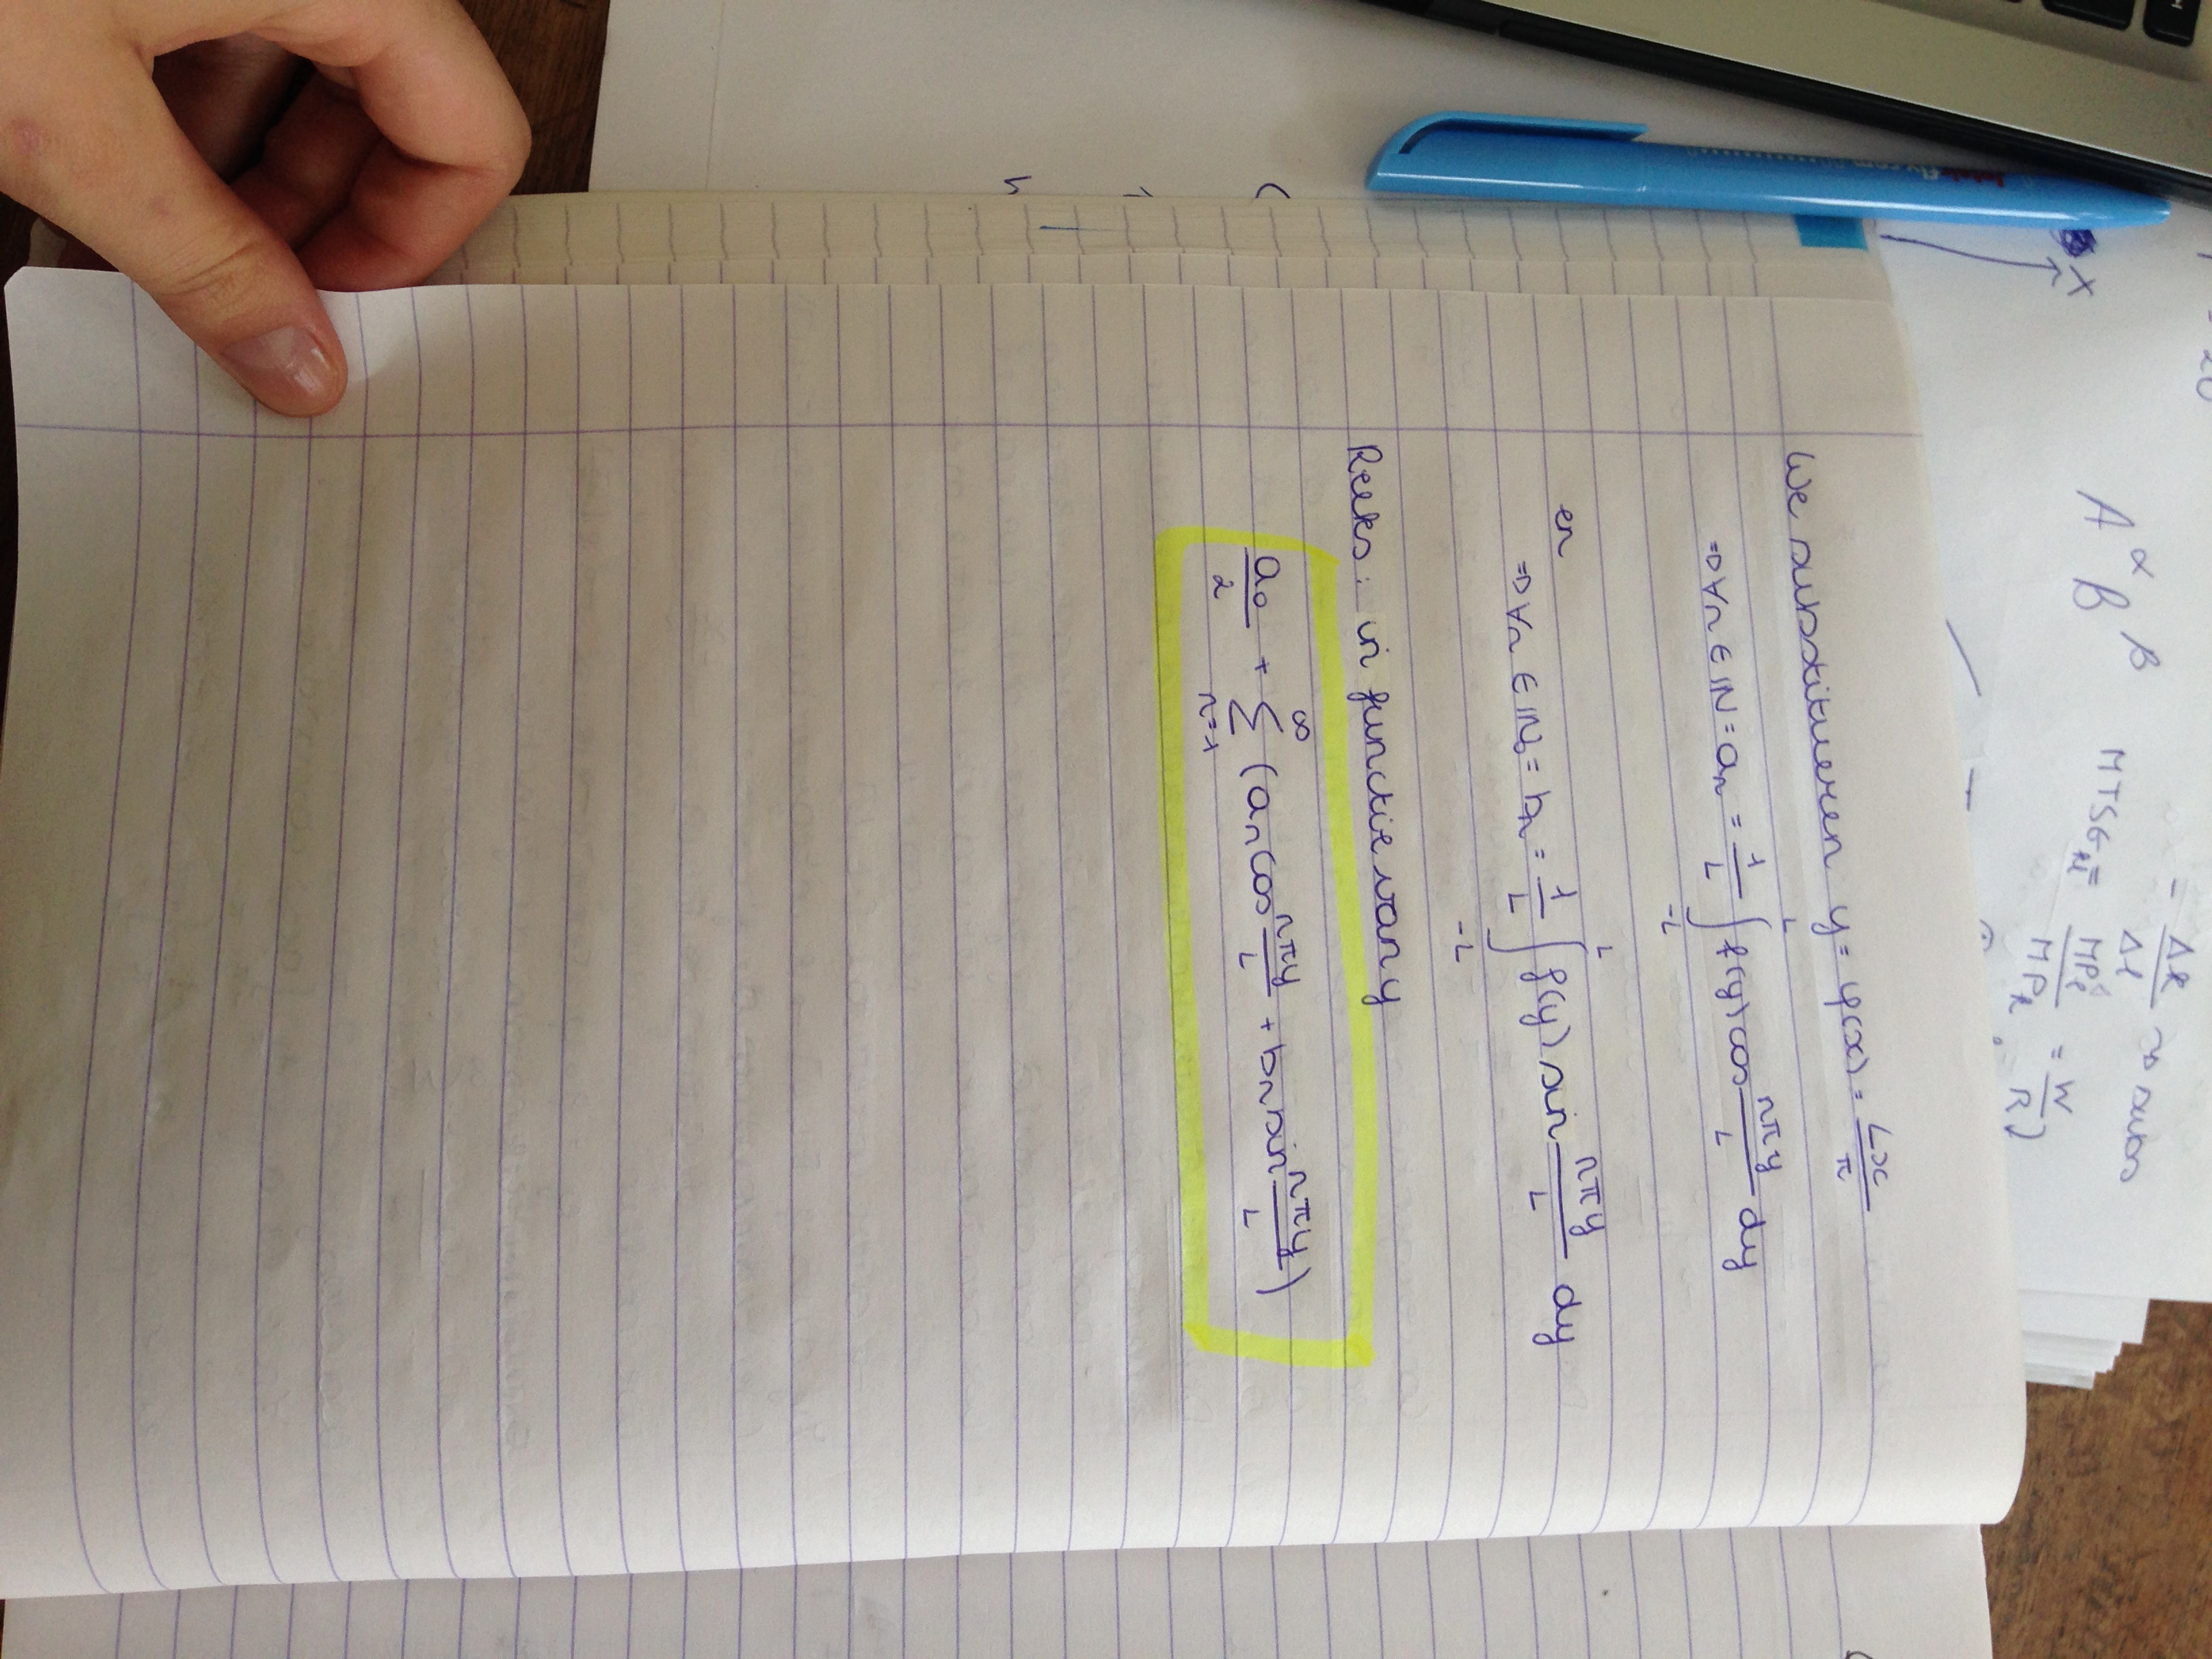 A^α B^β
- ΔK/Δl ~> subs
= MPl/MPk = W/R
We substitueren y = φ(x) = Lx/π
⇒ ∀n ∈ ℕ = aₙ = 1/L ∫_{-L}^{L} f(y) cos nπy/L dy
en
⇒ ∀n ∈ ℕ₀ = bₙ = 1/L ∫_{-L}^{L} f(y) sin nπy/L dy
Reeks: in functie van y
a₀/2 + ∑_{n=1}^{∞} (aₙ cos nπy/L + bₙ sin nπy/L)